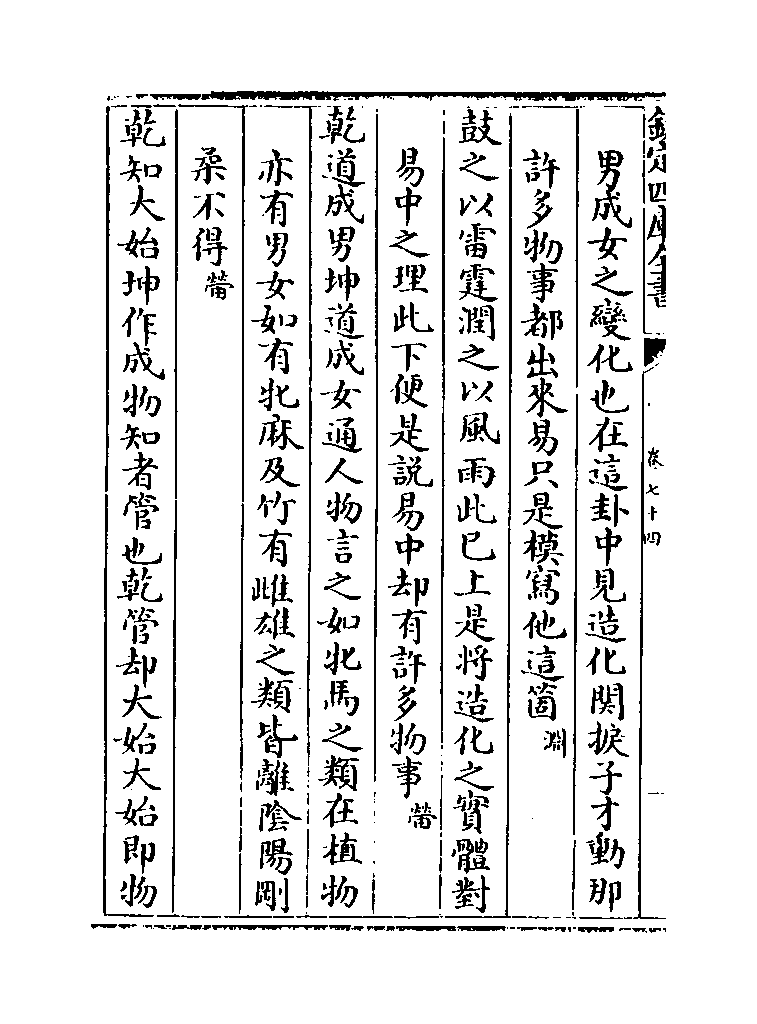 欽定四庫全書
卷七十四
男成女之變化也在這卦中見造化関捩子才動那
許多物事都出來易只是模寫他這箇淵
鼓之以雷霆潤之以風雨此已上是將造化之實體對
易中之理此下便是説易中却有許多物事㽦
乾道成男坤道成女通人物言之如牝馬之類在植物
亦有男女如有牝麻及竹有雌雄之類皆離陰陽剛
柔不得㽦
乾知大始坤作成物知者管也乾管却大始大始即物